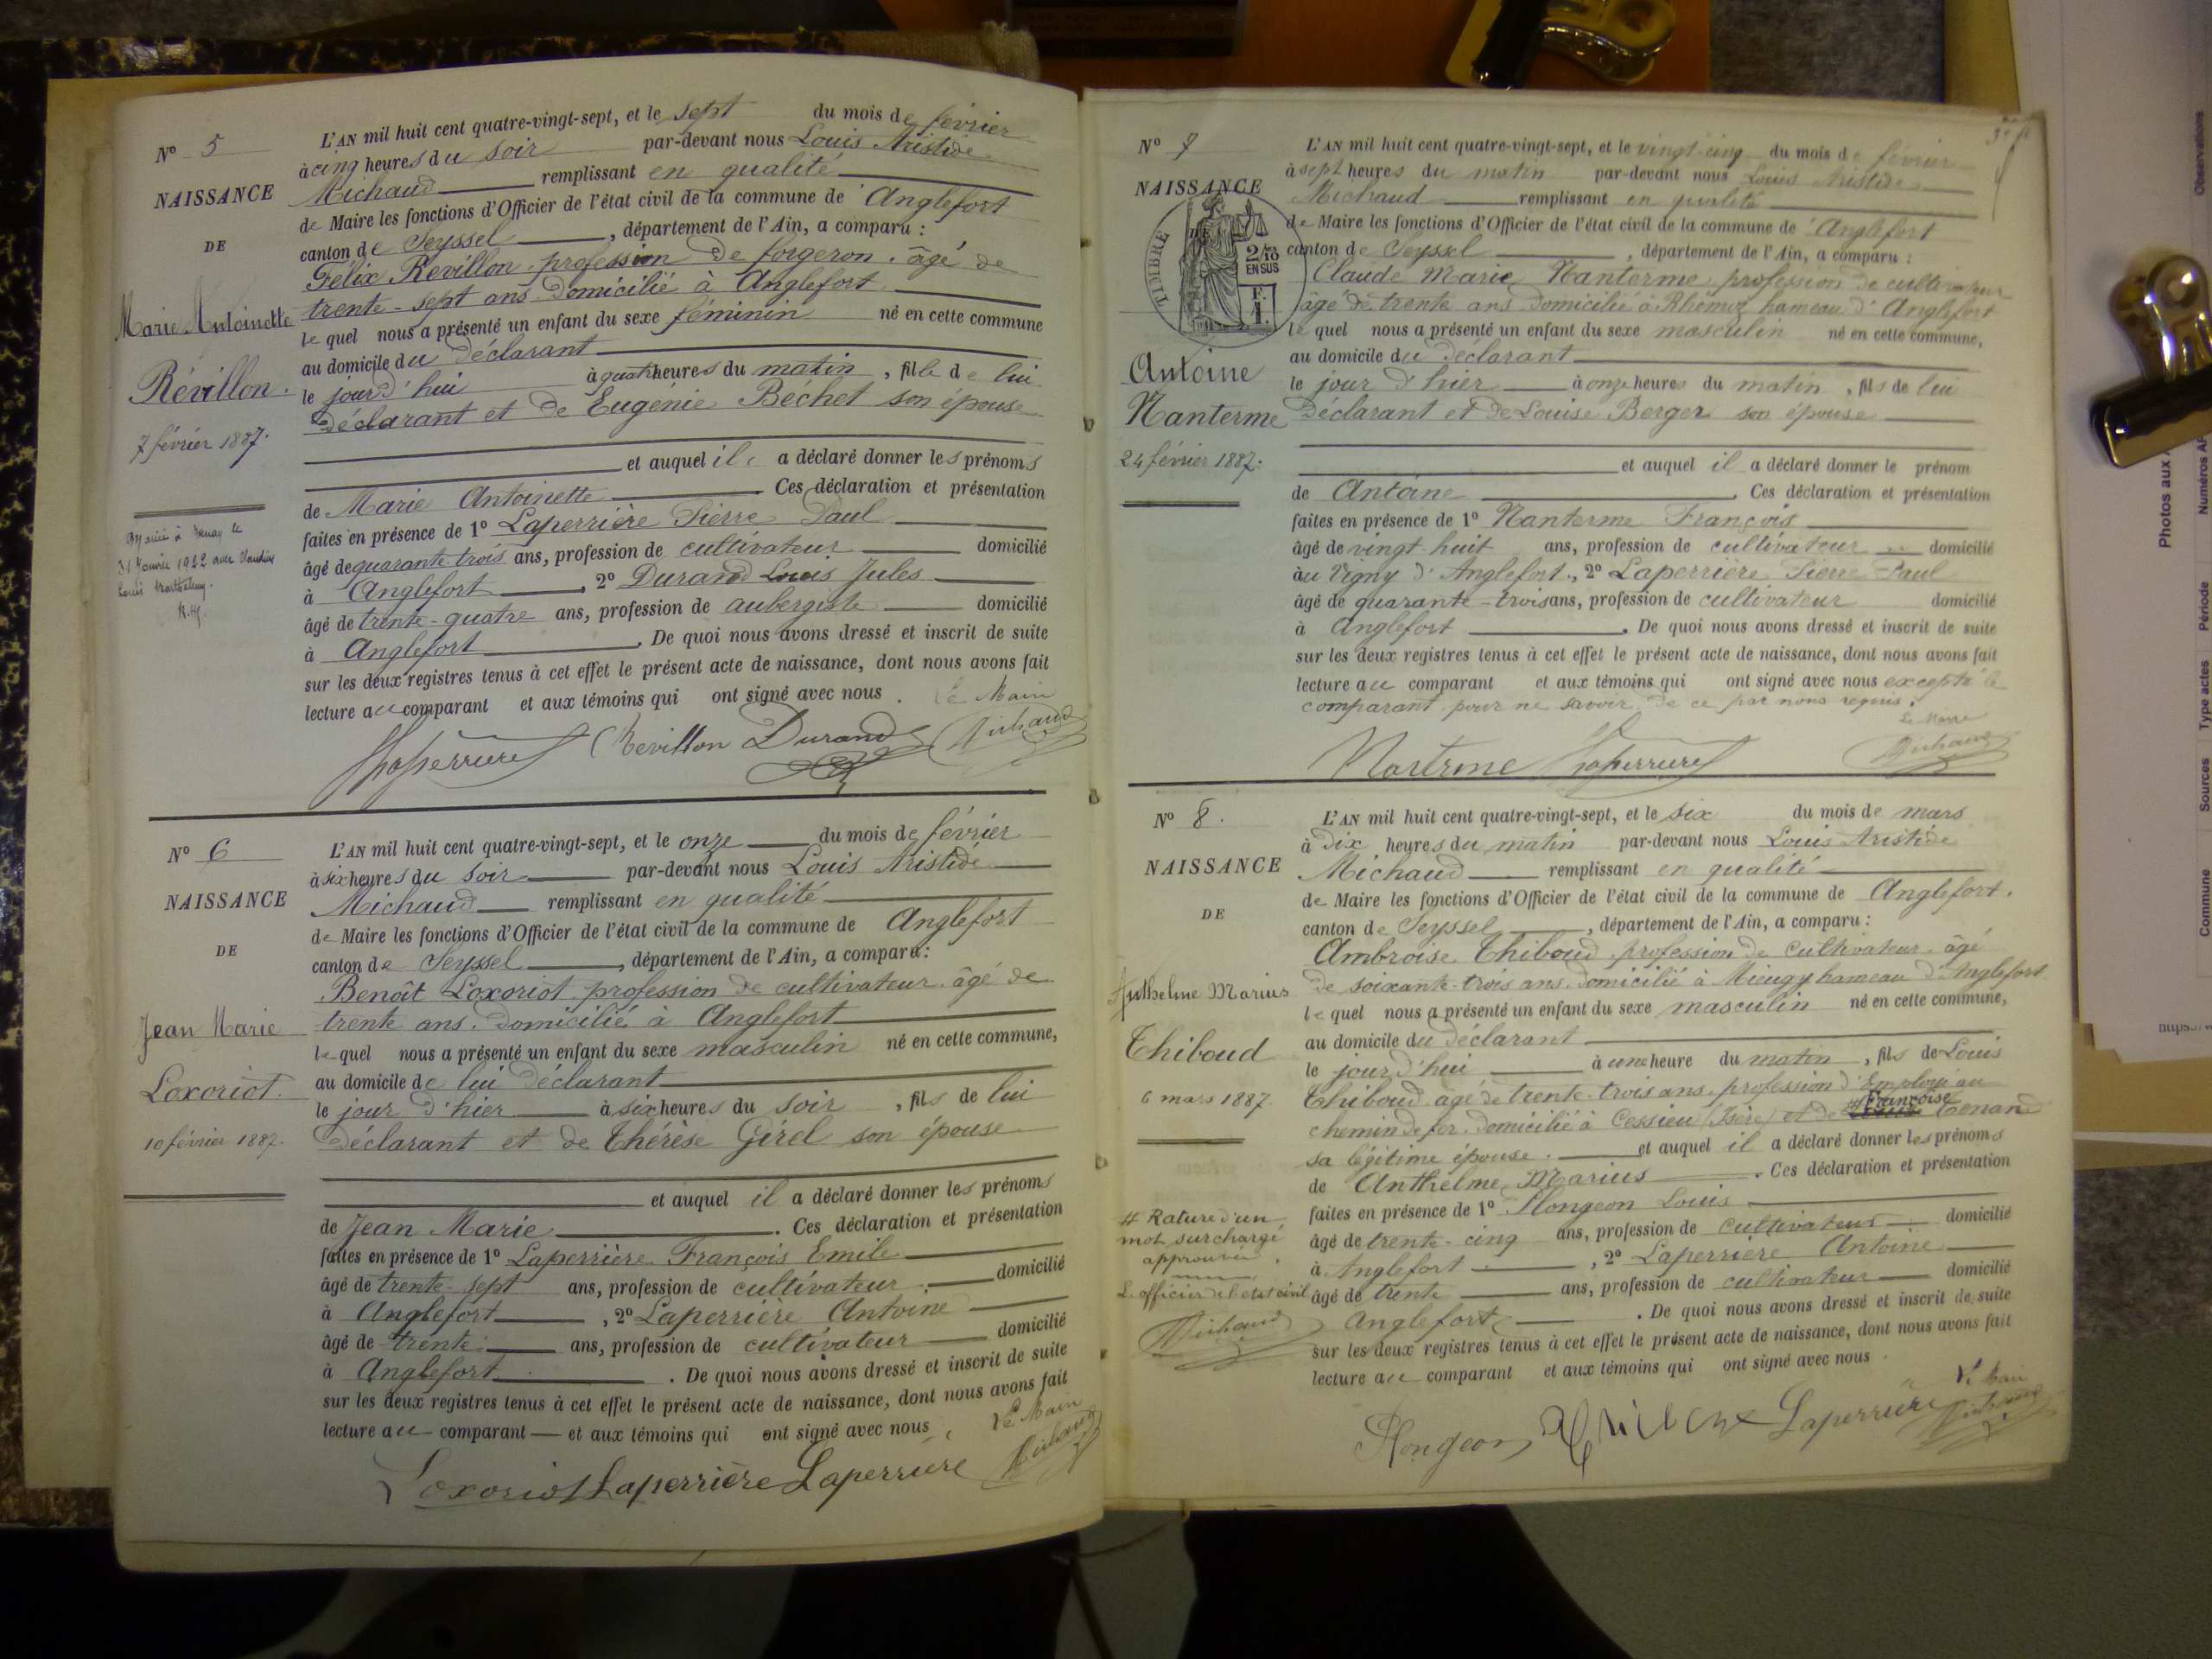 N° 5
NAISSANCE
DE
Marie Antoinette
Révillon.
7 février 1887.
Marié à
31 Janvier 1922 avec Claudius
Louis
L'AN mil huit cent quatre-vingt-sept, et le sept du mois de février
à cinq heures du soir par-devant nous Louis Aristide
Michaud remplissant en qualité
de Maire les fonctions d'Officier de l'état civil de la commune de Anglefort
canton de Seyssel, département de l'Ain, a comparu :
Félix Révillon profession de forgeron. âgé de
trente-sept ans domicilié à Anglefort
le quel nous a présenté un enfant du sexe féminin né en cette commune
au domicile du déclarant
le jour d'hui à quatre heures du matin, fille de lui
déclarant et de Eugénie Béchet son épouse
et auquel il a déclaré donner les prénoms
de Marie Antoinette. Ces déclaration et présentation
faites en présence de 1° Laperrière Pierre Paul
âgé de quarante trois ans, profession de cultivateur domicilié
à Anglefort, 2° Durand Louis Jules
âgé de trente-quatre ans, profession de aubergiste domicilié
à Anglefort. De quoi nous avons dressé et inscrit de suite
sur les deux registres tenus à cet effet le présent acte de naissance, dont nous avons fait
lecture au comparant et aux témoins qui ont signé avec nous.
Le Maire
Laperrière Revillon Durand Michaud
N° 6
NAISSANCE
DE
Jean Marie
Loxoriot.
10 février 1887.
L'AN mil huit cent quatre-vingt-sept, et le onze du mois de février
à six heures du soir par-devant nous Louis Aristide
Michaud remplissant en qualité
de Maire les fonctions d'Officier de l'état civil de la commune de Anglefort
canton de Seyssel, département de l'Ain, a comparu :
Benoît Loxoriot profession de cultivateur âgé de
trente ans. domicilié à Anglefort
le quel nous a présenté un enfant du sexe masculin né en cette commune,
au domicile de lui déclarant
le jour d'hier à six heures du soir, fils de lui
déclarant et de Thérèse Girel son épouse
et auquel il a déclaré donner les prénoms
de Jean Marie. Ces déclaration et présentation
faites en présence de 1° Laperrière François Emile
âgé de trente-sept ans, profession de cultivateur domicilié
à Anglefort, 2° Laperrière Antoine
âgé de trente ans, profession de cultivateur domicilié
à Anglefort. De quoi nous avons dressé et inscrit de suite
sur les deux registres tenus à cet effet le présent acte de naissance, dont nous avons fait
lecture au comparant et aux témoins qui ont signé avec nous.
Le Maire
Loxoriot Laperrière Laperrière Michaud
N° 7
NAISSANCE
DE
TIMBRE
2/10
EN SUS
Antoine
Nanterme
24 février 1887.
L'AN mil huit cent quatre-vingt-sept, et le vingt-cinq du mois de février
à sept heures du matin par-devant nous Louis Aristide
Michaud remplissant en qualité
de Maire les fonctions d'Officier de l'état civil de la commune de Anglefort
canton de Seyssel, département de l'Ain, a comparu :
Claude Marie Nanterme, profession de cultivateur
âgé de trente ans domicilié à Rhémoz hameau d'Anglefort
le quel nous a présenté un enfant du sexe masculin né en cette commune,
au domicile du déclarant
le jour d'hier à onze heures du matin, fils de lui
déclarant et de Louise Berger son épouse
et auquel il a déclaré donner le prénom
de Antoine. Ces déclaration et présentation
faites en présence de 1° Nanterme François
âgé de vingt-huit ans, profession de cultivateur domicilié
au Vigny d'Anglefort, 2° Laperrière Pierre Paul
âgé de quarante-trois ans, profession de cultivateur domicilié
à Anglefort. De quoi nous avons dressé et inscrit de suite
sur les deux registres tenus à cet effet le présent acte de naissance, dont nous avons fait
lecture au comparant et aux témoins qui ont signé avec nous excepté le
comparant pour ne savoir de ce par nous requis.
Le Maire
Nartrme Laperrière Michaud
N° 8.
NAISSANCE
DE
Anthelme Marius
Thiboud
6 mars 1887.
# Rature d'un
mot surchargé
approuvée
L'officier de l'état civil
Michaud
L'AN mil huit cent quatre-vingt-sept, et le six du mois de mars
à dix heures du matin par-devant nous Louis Aristide
Michaud remplissant en qualité
de Maire les fonctions d'Officier de l'état civil de la commune de Anglefort.
canton de Seyssel, département de l'Ain, a comparu :
Ambroise Thiboud profession de cultivateur âgé
de soixante-trois ans domicilié à Mieugy hameau d'Anglefort
le quel nous a présenté un enfant du sexe masculin né en cette commune,
au domicile du déclarant
le jour d'hui à une heure du matin, fils de Louis
Thiboud âgé de trente-trois ans profession d'Employé au
chemin de fer domicilié à Cessieu (Isère) et de # Françoise Tenand
sa légitime épouse. et auquel il a déclaré donner les prénoms
de Anthelme Marius. Ces déclaration et présentation
faites en présence de 1° Mongeon Louis
âgé de trente-cinq ans, profession de cultivateur domicilié
à Anglefort, 2° Laperrière Antoine
âgé de trente ans, profession de cultivateur domicilié
Anglefort. De quoi nous avons dressé et inscrit de suite
sur les deux registres tenus à cet effet le présent acte de naissance, dont nous avons fait
lecture au comparant et aux témoins qui ont signé avec nous.
Le Maire
Mongeon Laperrière Michaud
Commune
Sources
Type actes
Période
Numéros
Photos aux
Observations